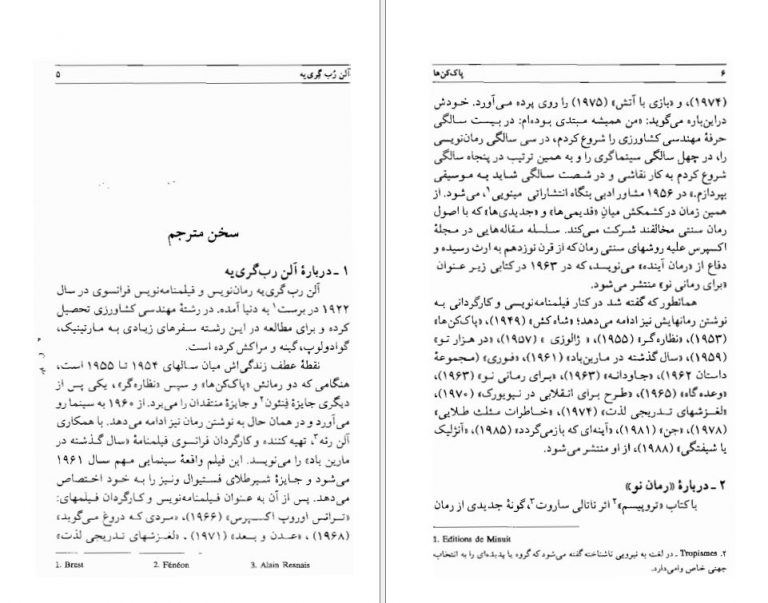 آلن رُب گری‌یه ۵
سخن مترجم
۱ ـ دربارهٔ آلن رب‌گری‌یه
آلن رب گری‌یه رمان‌نویس و فیلمنامه‌نویس فرانسوی در سال
۱۹۲۲ در برست۱ به دنیا آمده. در رشتهٔ مهندسی کشاورزی تحصیل
کرده و برای مطالعه در این رشته سفرهای زیادی به مارتینیک،
گوادولوپ، گینه و مراکش کرده است.
نقطهٔ عطف زندگی‌اش میان سالهای ۱۹۵۴ تا ۱۹۵۵ است،
هنگامی که دو رمانش «پاک‌کن‌ها» و سپس «نظاره‌گر»، یکی پس از
دیگری جایزهٔ فِنئون۲ و جایزهٔ منتقدان را می‌برد. از ۱۹۶۰ به سینما رو
می‌آورد و در همان حال به نوشتن رمان نیز ادامه می‌دهد. با همکاری
آلن رنه۳، تهیه کننده و کارگردان فرانسوی فیلمنامهٔ «سال گذشته در
مارین باد» را می‌نویسد. این فیلم واقعهٔ سینمایی مهم سال ۱۹۶۱
می‌شود و جایزهٔ شیرطلای فستیوال ونیز را به خود اختصاص
می‌دهد. پس از آن به عنوان فیلمنامه‌نویس و کارگردان فیلمهای:
«ترانس اوروپ اکسپرس» (۱۹۶۶)، «مردی که دروغ می‌گوید»
(۱۹۶۸)، «عدن و بعد» (۱۹۷۱)، «لغزشهای تدریجی لذت»
1. Brest 2. Fénéon 3. Alain Resnais
۶ پاک‌کن‌ها
(۱۹۷۴)، و «بازی با آتش» (۱۹۷۵) را روی پرده می‌آورد. خودش
دراین‌باره می‌گوید: «من همیشه مبتدی بوده‌ام: در بیست سالگی
حرفهٔ مهندسی کشاورزی را شروع کردم، در سی سالگی رمان‌نویسی
را، در چهل سالگی سینماگری را و به همین ترتیب در پنجاه سالگی
شروع کردم به کار نقاشی و در شصت سالگی شاید به موسیقی
بپردازم.» در ۱۹۵۶ مشاور ادبی بنگاه انتشاراتی مینویی۱، می‌شود. از
همین زمان در کشمکش میان «قدیمی‌ها» و «جدیدی‌ها» که با اصول
رمان سنتی مخالفند شرکت می‌کند. سلسله مقاله‌هایی در مجلهٔ
اکسپرس علیه روشهای سنتی رمان که از قرن نوزدهم به ارث رسیده و
دفاع از «رمان آینده» می‌نویسد، که در ۱۹۶۳ در کتابی زیر عنوان
«برای رمانی نو» منتشر می‌شود.
همانطور که گفته شد در کنار فیلمنامه‌نویسی و کارگردانی به
نوشتن رمانهایش نیز ادامه می‌دهد؛ «شاه‌کش» (۱۹۴۹)، «پاک‌کن‌ها»
(۱۹۵۳)، «نظاره‌گر» (۱۹۵۵)، «ژالوزی» (۱۹۵۷)، «در هزار تو»
(۱۹۵۹)، «سال گذشته در مارین‌باد» (۱۹۶۱)، «فوری» (مجموعهٔ
داستان ۱۹۶۲)، «جاودانه» (۱۹۶۳)، «برای رمانی نو» (۱۹۶۳)،
«وعده‌گاه» (۱۹۶۵)، «طرح برای انقلابی در نیویورک» (۱۹۷۰)،
«لغزشهای تدریجی لذت» (۱۹۷۴)، «خاطرات مثلث طلایی»
(۱۹۷۸)، «جن» (۱۹۸۱)، «آینه‌ای که بازمی‌گردد» (۱۹۸۵)، «آنژلیک
یا شیفتگی» (۱۹۸۸)، از او منتشر می‌شود.
۲ ـ دربارهٔ «رمان نو»
با کتاب «تروپیسم»۲ اثر ناتالی ساروت۳، گونهٔ جدیدی از رمان
1. Editions de Minuit
۲. Tropismes ـ در لغت به نیرویی ناشناخته گفته می‌شود که گروه یا پدیده‌ای را به انتخاب
جهتی خاص وامی‌دارد.